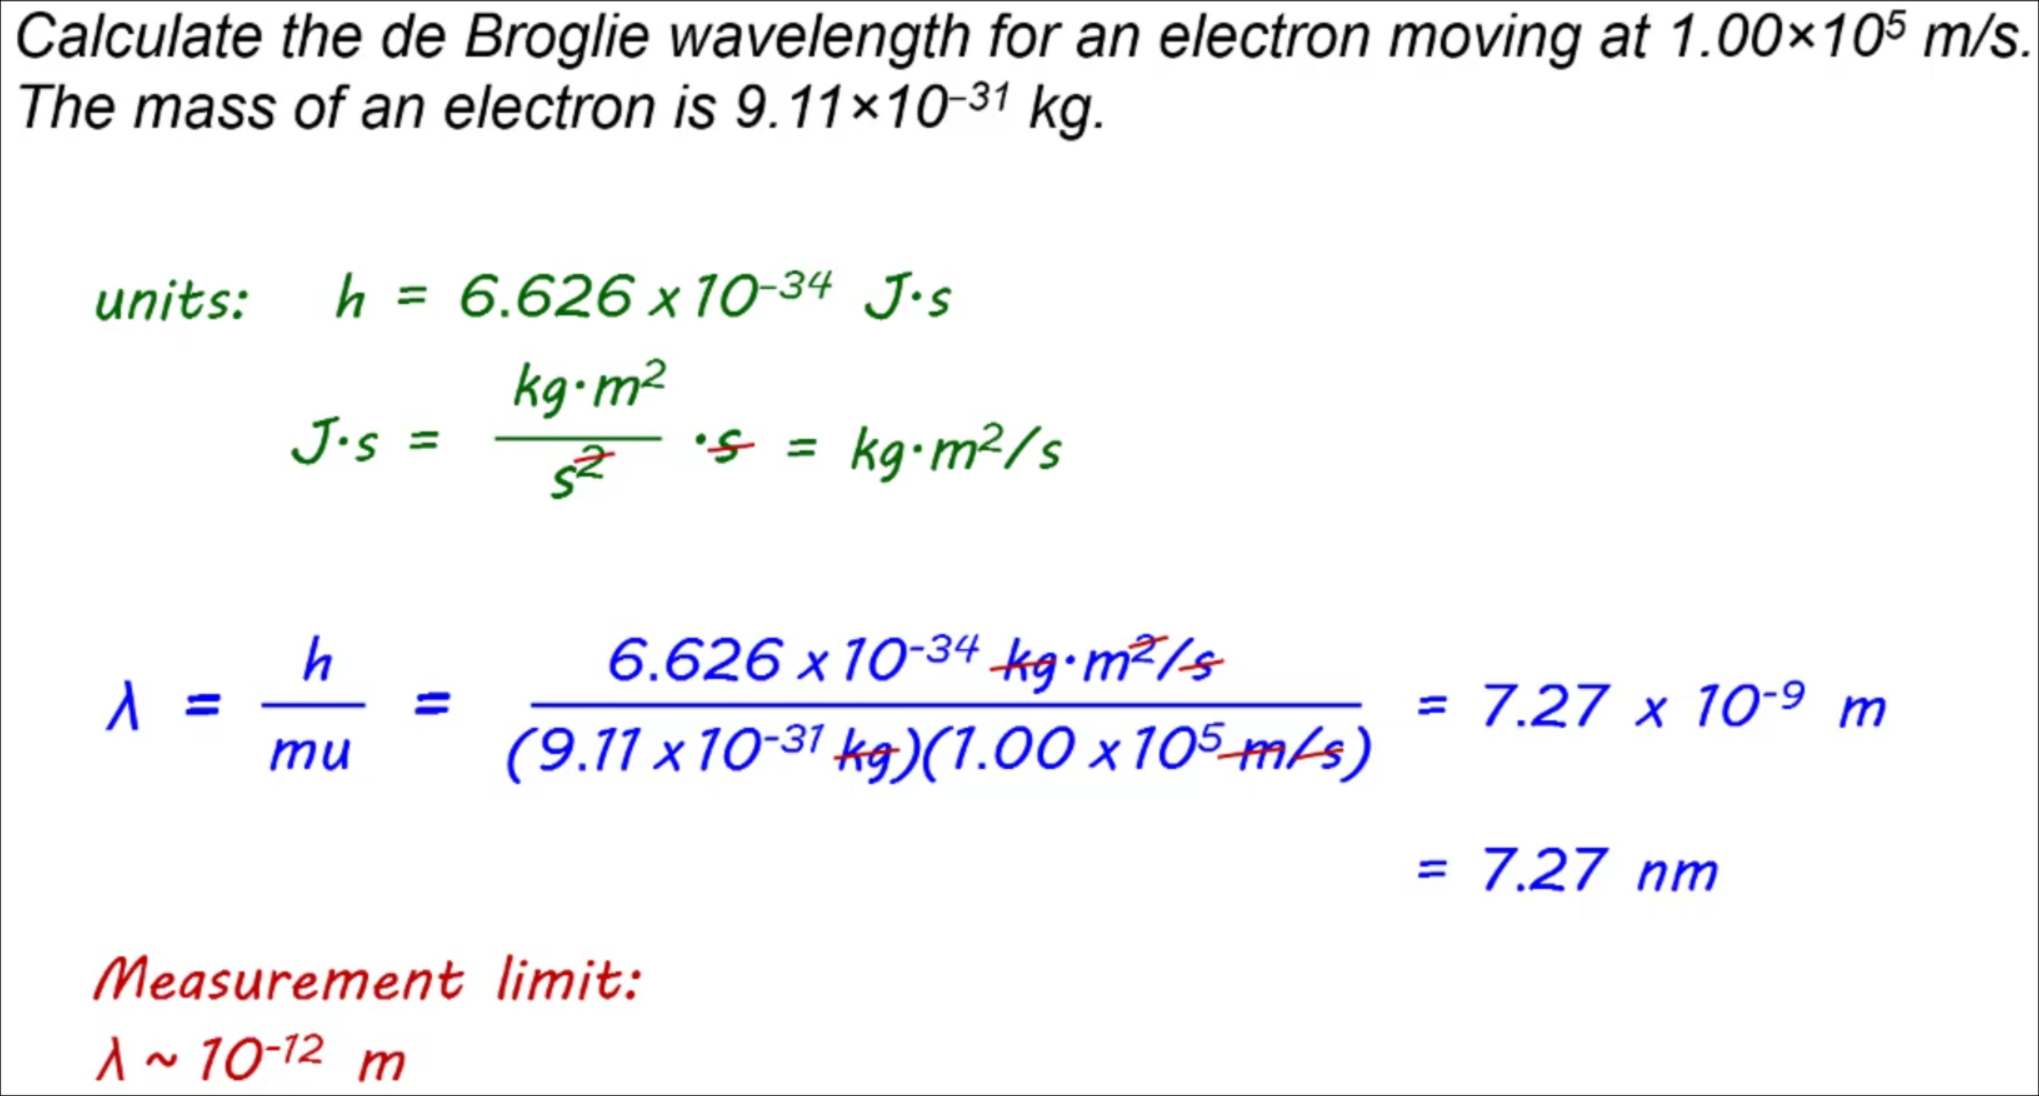 Calculate the de Broglie wavelength for an electron moving at 1.00×10⁵ m/s.
The mass of an electron is 9.11×10⁻³¹ kg.
units: h = 6.626 x 10⁻³⁴ J·s
J·s = kg·m² / s² ·s = kg·m²/s
λ = h / mu = 6.626 x 10⁻³⁴ kg·m²/s / (9.11 x 10⁻³¹ kg)(1.00 x 10⁵ m/s) = 7.27 x 10⁻⁹ m
= 7.27 nm
Measurement limit:
λ ~ 10⁻¹² m